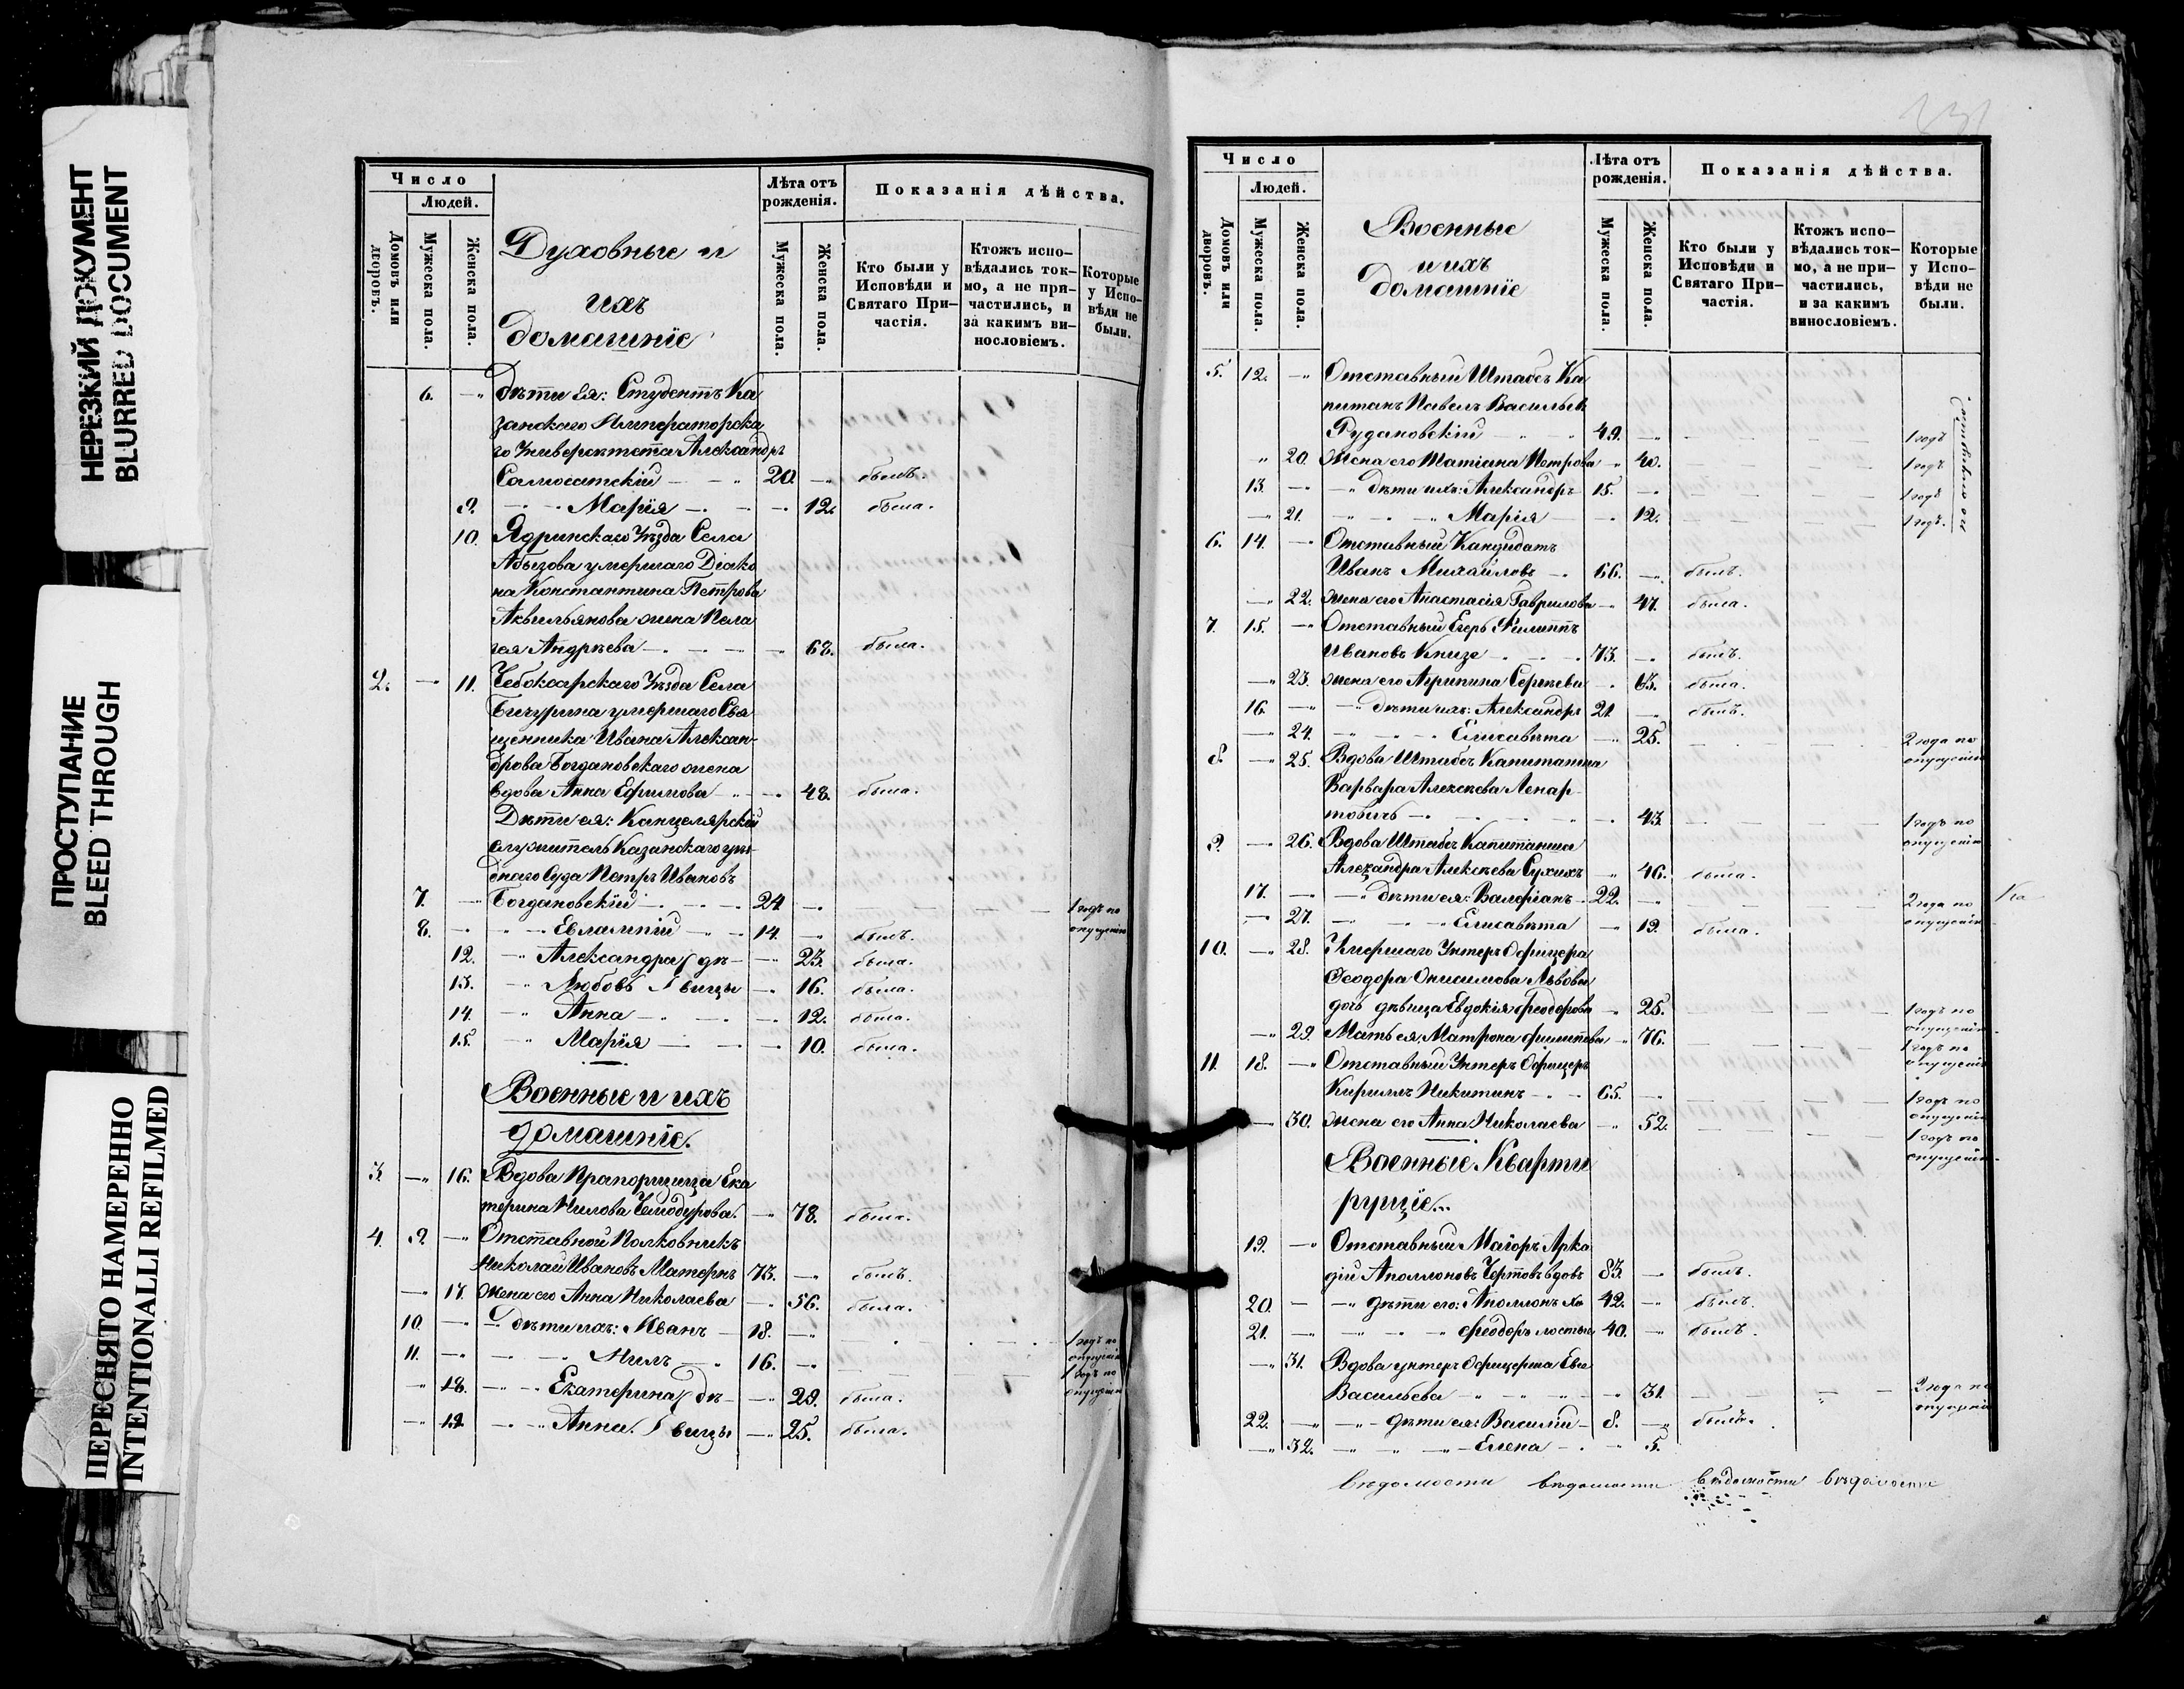 НЕРЕЗКИЙ ДОКУМЕНТ
BLURRED DOCUMENT
ПРОСТУПАНИЕ
BLEED THROUGH
ПЕРЕСНЯТО НАМЕРЕННО
INTENTIONALLI REFILMED
Число
Людей.
Домовъ или дворовъ.
Мужеска пола.
Женска пола.
Духовные и
ихъ
домашніе
Лѣта отъ рожденія.
Мужеска пола.
Женска пола.
Показанія дѣйства.
Кто были у Исповѣди и Святаго Причастія.
Ктожъ исповѣдались токмо, а не причастились, и за какимъ винословіемъ.
Которые у Исповѣди не были.
6. Дѣти ея: Студентъ Ка
занскаго Императорска
го Университета Александръ
Салмосатскій 20. былъ.
9. Марія 12. была.
10. Ядринскаго Уѣзда Села
Абызова умершаго Діако
на Константина Петрова
Аквильянова жена Пела
гея Андрѣева 68. была.
2. 11. Чебоксарскаго Уѣзда Села
Бичурина умершаго Свя
щенника Ивана Алексан-
дрова Богдановскаго жена
вдова Анна Ефимова 48. была.
Дѣти ея: Канцелярскій
служитель Казанскаго уѣз-
днаго Суда Петръ Ивановъ
7. Богдановскій 24. 1 годъ по опущенію
8. Евлампій 14. былъ.
12. Александра дѣ- 23. была.
13. Любовь вицы 16. была.
14. Анна 12. была.
15. Марія 10. была.
Военные и ихъ
домашніе.
3. 16. Вдова Прапорщица Ека
терина Нилова Чемодурова. 78. была.
4. 9. Отставной Полковникъ
Николай Ивановъ Матернъ 73. былъ.
17. Жена его Анна Николаева 56. была.
10. дѣти ихъ: Иванъ 18. 1 годъ по опущенію
11. Нилъ 16. 1 годъ по опущенію
18. Екатерина дѣ- 28. была.
19. Анна вицы 25. была.
Число
Людей.
Домовъ или дворовъ.
Мужеска пола.
Женска пола.
Военные
и ихъ
домашніе
Лѣта отъ рожденія.
Мужеска пола.
Женска пола.
Показанія дѣйства.
Кто были у Исповѣди и Святаго Причастія.
Ктожъ исповѣдались токмо, а не причастились, и за какимъ винословіемъ.
Которые у Исповѣди не были.
5. 12. Отставный Штабсъ Ка
питанъ Павелъ Васильевъ
Рудановскій 49. 1 годъ
20. Жена его Татіана Петрова 40. 1 годъ
13. дѣти ихъ: Александръ 15. 1 годъ
21. Марія 12. 1 годъ.
6. 14. Отставный Кандидатъ
Иванъ Михайловъ 66. былъ.
22. Жена его Анастасія Гаврилова 47. была.
7. 15. Отставный Егерь Филиппъ
Ивановъ Книзе 73. былъ.
23. Жена его Агрипина Сергѣева 63. была.
16. дѣти ихъ: Александръ 21. былъ.
24. Елисавѣта 25. 2 года по опущенію
8. 25. Вдова Штабсъ Капитанша
Варвара Алексѣева Ленар
товичь 43. 1 годъ по опущенію
9. 26. Вдова Штабсъ Капитанша
Александра Алексѣева Сухихъ 46. была.
17. дѣти ея: Валеріанъ 22. 2 года по опущенію
27. Елисавѣта 19. была.
10. 28. Умершаго Унтеръ Офицера
Феодора Онисимова Львова
дочь дѣвица Евдокія Феодорова 25. 1 годъ по опущенію
29. Мать ея, Матрона Филиппова 76. 1 годъ по опущенію
11. 18. Отставный Унтеръ Офицеръ
Кириллъ Никитинъ 65. 1 годъ по опущенію
30. Жена его Анна Николаева 52. 1 годъ по опущенію
Военные Кварти
рущіе..
19. Отставный Маіоръ Арка
дій Аполлоновъ Чертовъ вдовъ 83. былъ.
20. дѣти его: Аполлонъ хо 42. былъ.
21. Феодоръ лостые 40. былъ.
31. Вдова унтеръ Офицерша Ева
Васильева 31. 3 года по опущенію
22. дѣти ея: Василій 8. былъ.
32. Елена 5.
вѣдомости вѣдомости вѣдомости вѣдомости